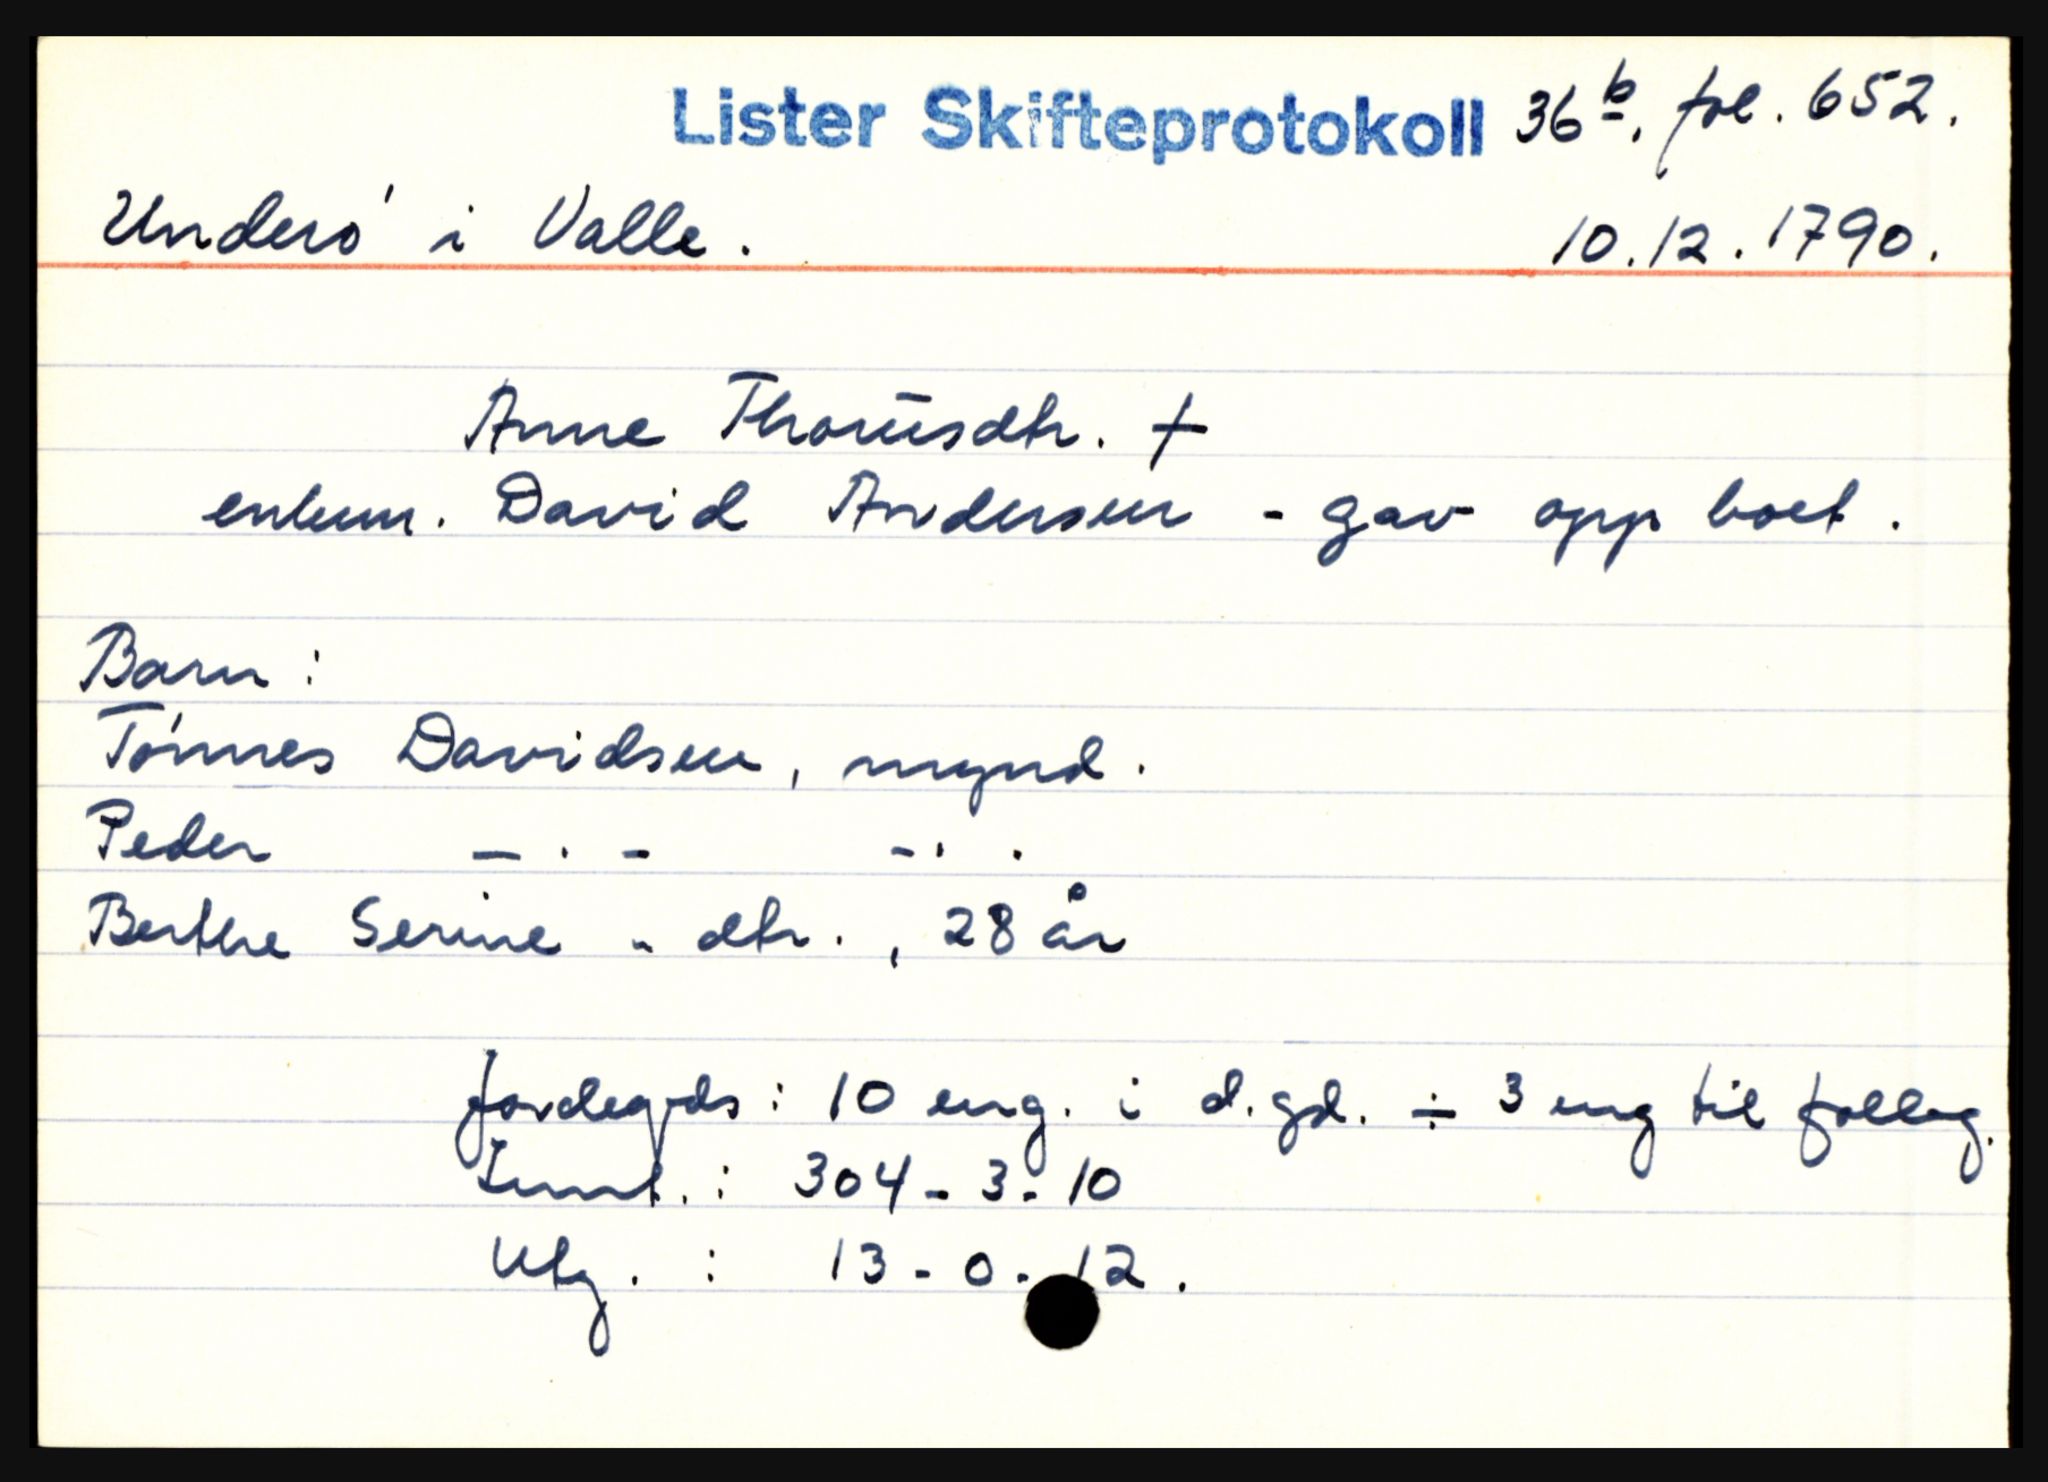 Lister Skifteprotokoll 36b. fol. 652.
Underø i Valle. 10.12.1790.
Anne Thorisdtr. †
enkem. David Andersen - gav opp boet.
Barn:
Tønnes Davidsen, mynd.
Peder — . - - . .
Berthe Serine - dtr., 28 år
Jordegods: 10 eng. i d. gd. ÷ 3 eng til folleg.
Innt.: 304 - 3 - 10
Utg. : 13 - 0 - 12.